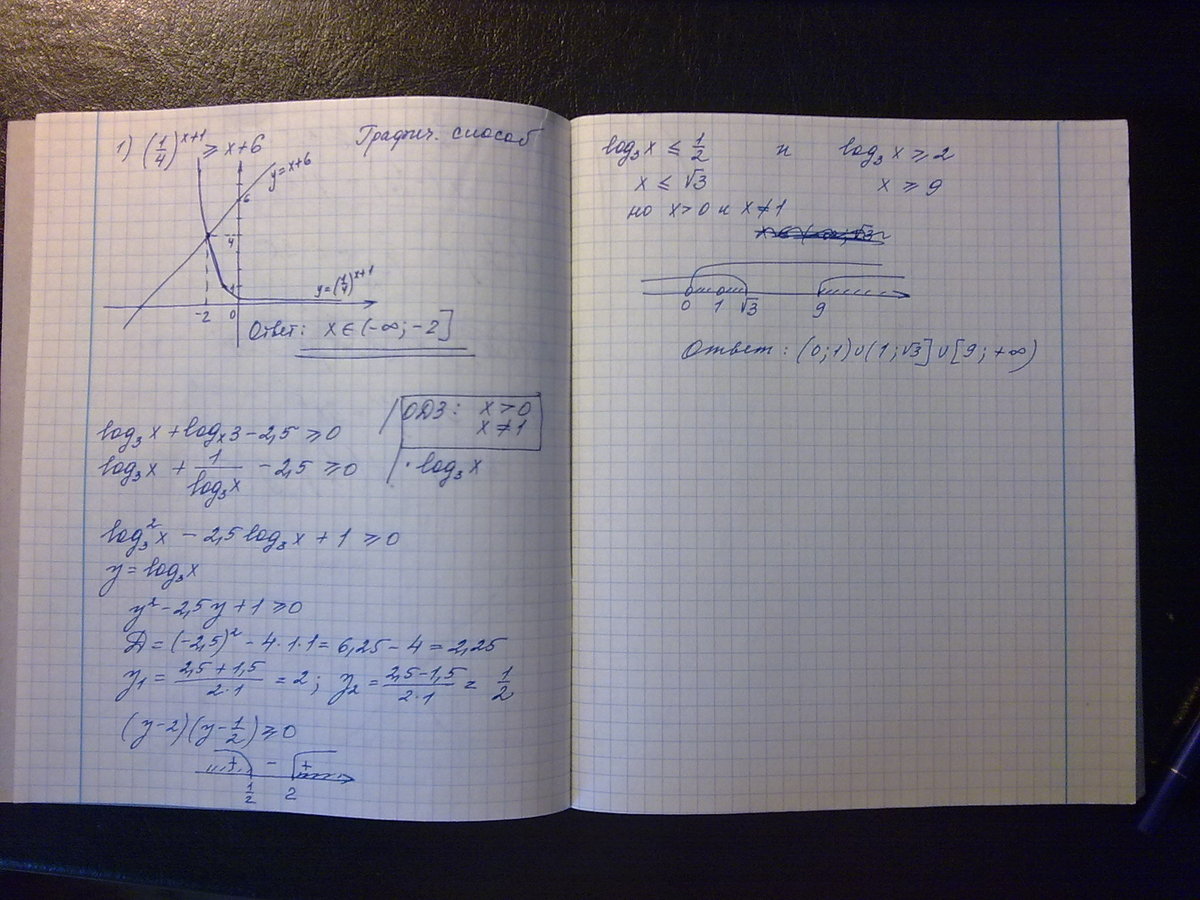 1) (1/4)^(x+1) ≥ x+6
Графич. способ
y=x+6
6
4
1
y=(1/4)^(x+1)
-2 0
Ответ: x∈(-∞;-2]
log₃x + logₓ3 - 2,5 ≥ 0
ОДЗ: x>0
x≠1
log₃x + 1/log₃x - 2,5 ≥ 0 | · log₃x
log₃²x - 2,5 log₃x + 1 ≥ 0
y = log₃x
y² - 2,5y + 1 ≥ 0
Д = (-2,5)² - 4·1·1 = 6,25 - 4 = 2,25
y₁ = (2,5+1,5)/(2·1) = 2; y₂ = (2,5-1,5)/(2·1) = 1/2
(y-2)(y-1/2) ≥ 0
+ - +
1/2 2
log₃x ≤ 1/2 и log₃x ≥ 2
x ≤ √3 x ≥ 9
но x>0 и x≠1
0 1 √3 9
Ответ: (0;1)∪(1;√3]∪[9;+∞)